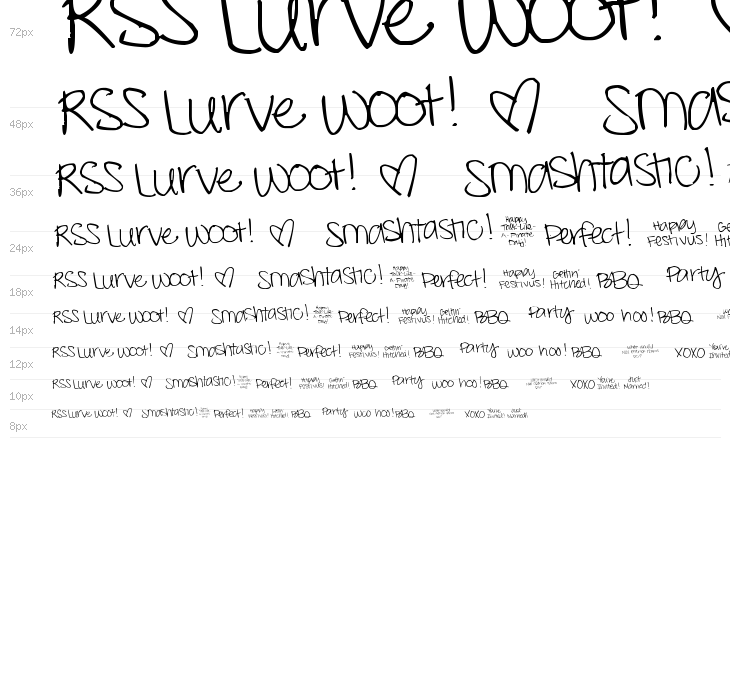 72px RSS Lurve Woot!
48px RSS Lurve Woot! Smas
36px RSS Lurve Woot! Smashtastic!
24px RSS Lurve Woot! Smashtastic! Happy Talk-Like-A-Pirate Day! Perfect! Happy Festivus! Ge Hi
18px RSS Lurve Woot! Smashtastic! Happy Talk-Like-A-Pirate Day! Perfect! Happy Festivus! Gettin' Hitched! BBQ Party
14px RSS Lurve Woot! Smashtastic! Perfect! Happy Festivus! Gettin' Hitched! BBQ Party Woo hoo! BBQ
12px RSS Lurve Woot! Smashtastic! Perfect! Happy Festivus! Gettin' Hitched! BBQ Party Woo hoo! BBQ XOXO You're Invited!
10px RSS Lurve Woot! Smashtastic! Perfect! Happy Festivus! Gettin' Hitched! BBQ Party Woo hoo! BBQ XOXO You're Invited! Just Married!
8px RSS Lurve Woot! Smashtastic! Perfect! Happy Festivus! Gettin' Hitched! BBQ Party Woo hoo! BBQ XOXO You're Invited! Just Married!